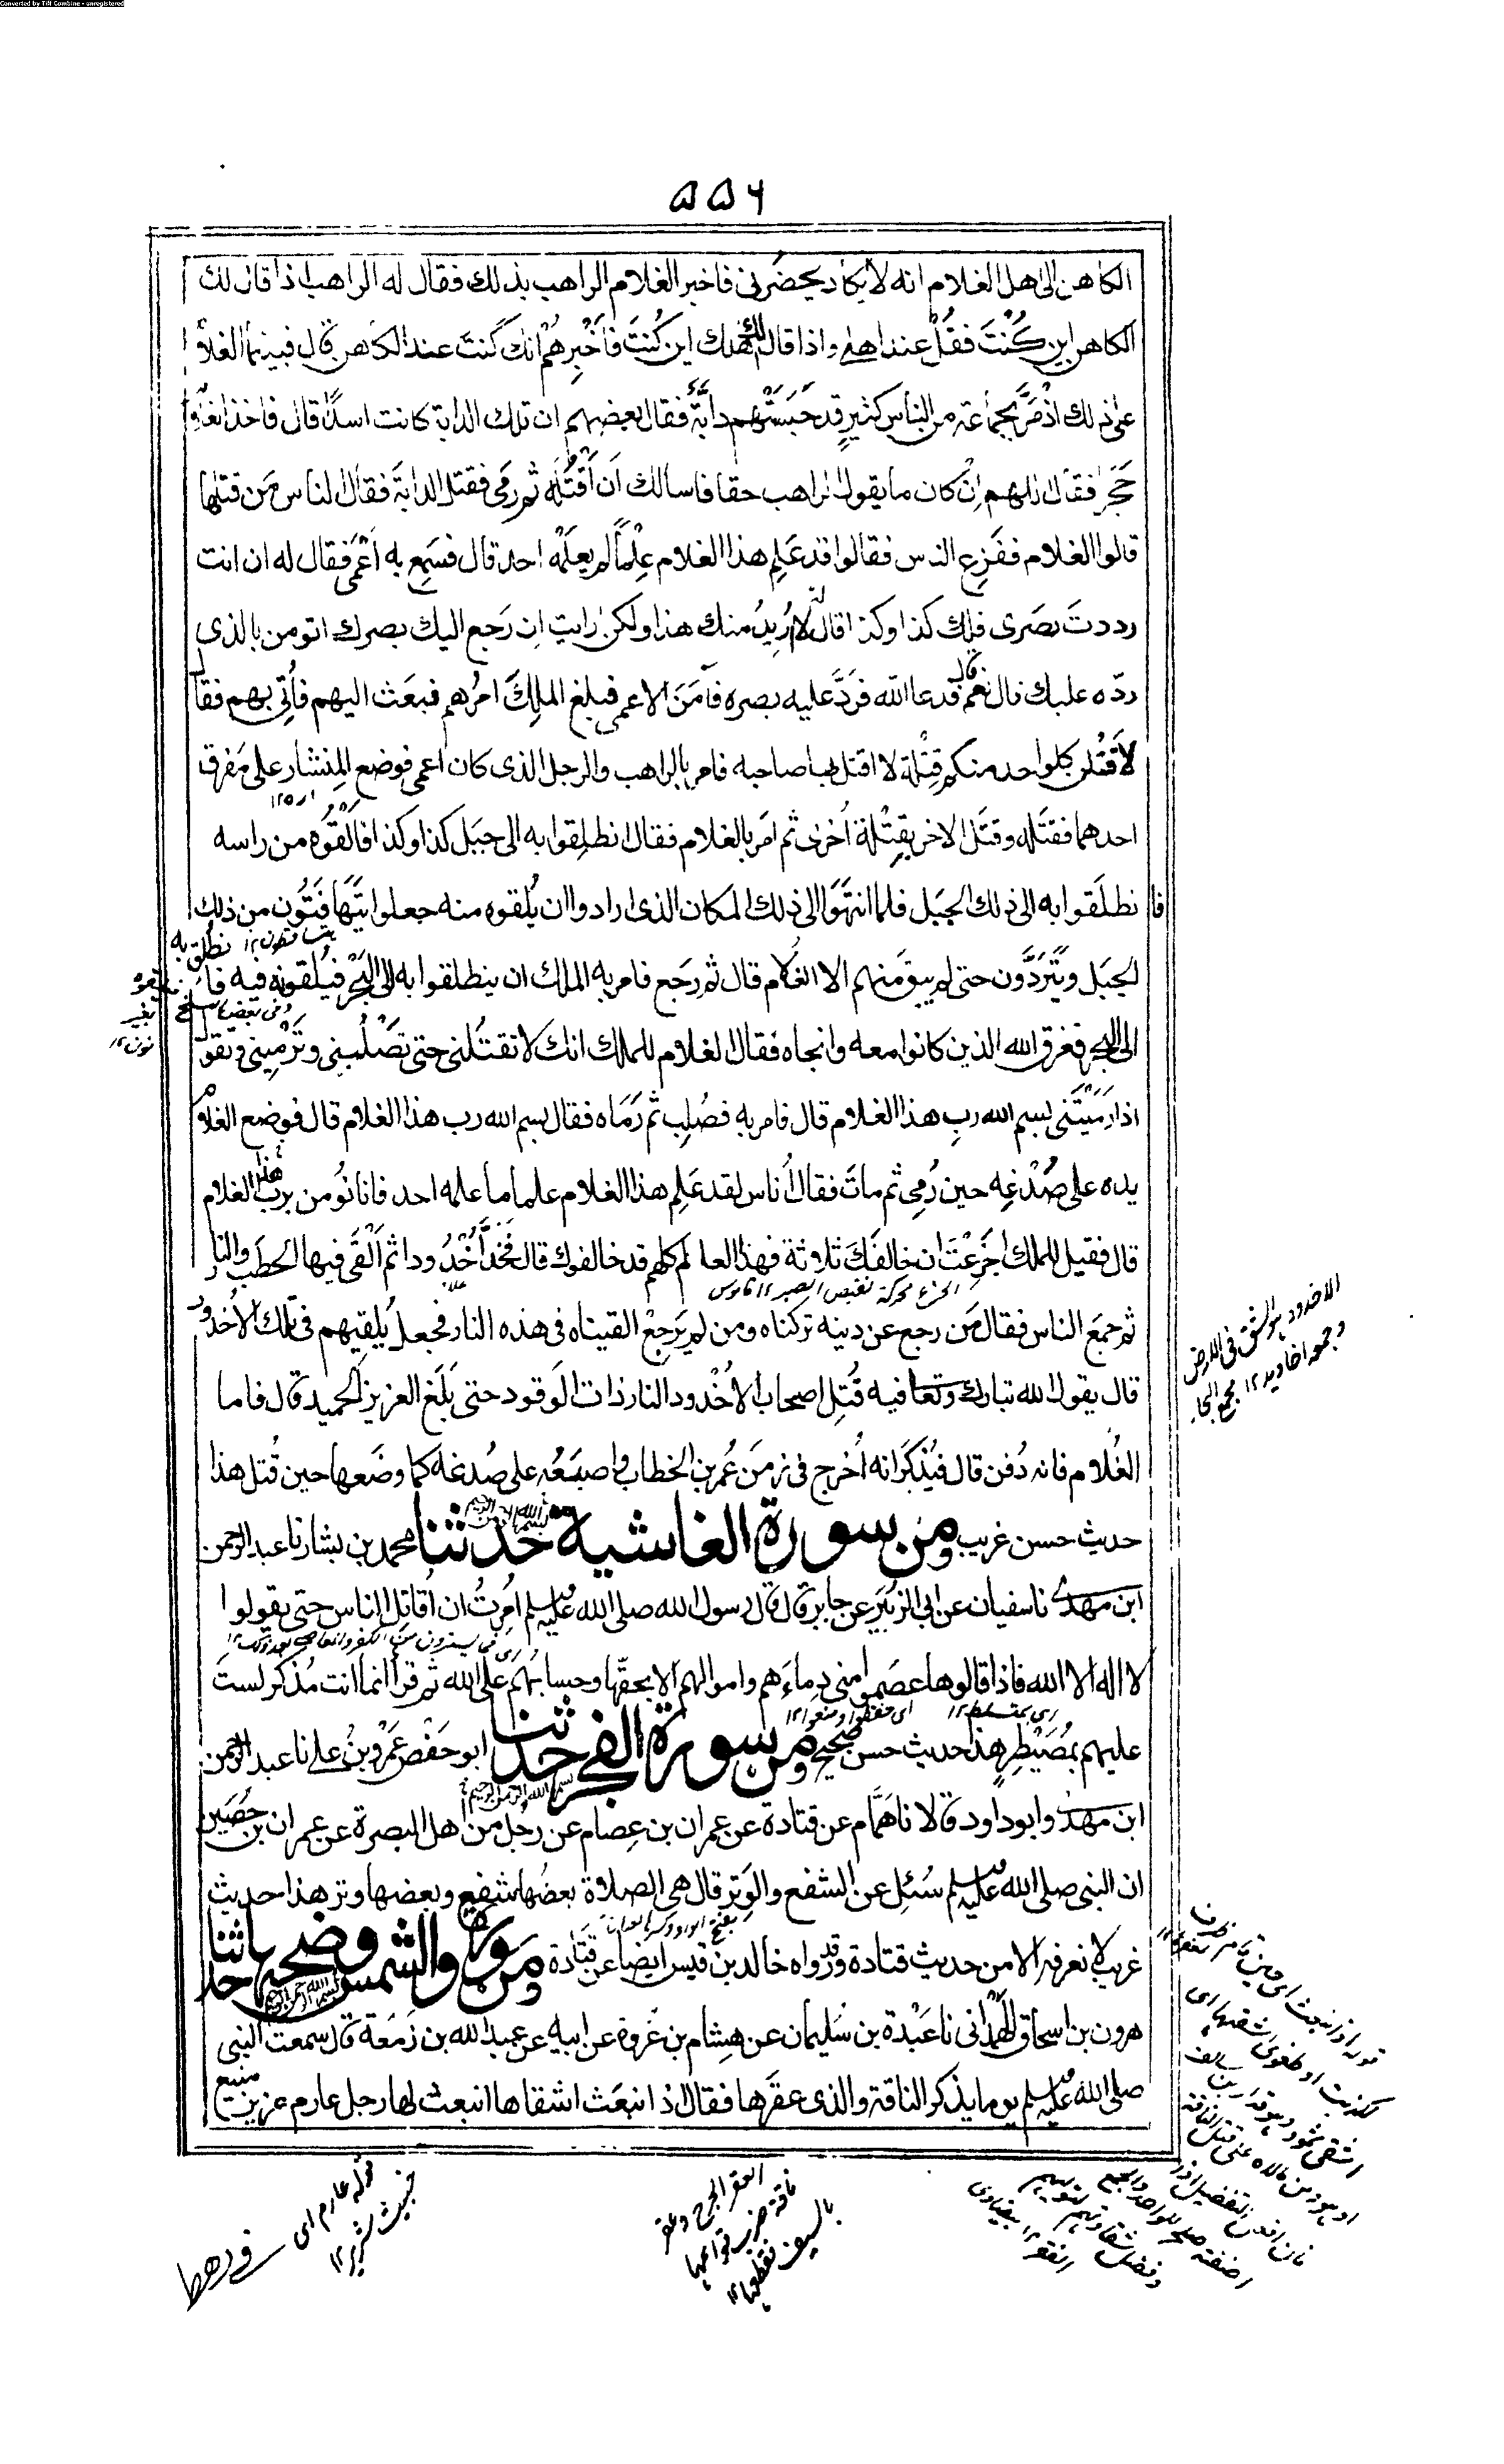 Converted by Tiff Combine - unregistered
۵۵۶
الكاهن الى اهل الغلام انه لا يكاد يحضرنى فاخبر الغلام الراهب بذلك فقال له الراهب اذا قال لك
الكاهن اين كُنْتَ فقُلْ عند اهلى واذا قال لك اهلك اين كُنتَ فاَخْبِرهُم انك كنتَ عند الكاهن قال فبينما الغلام
على ذلك اذ مَرَّ بجماعة من الناس كثيرٍ قد حَبَسَتْهم دابّةٌ فقال بعضهم ان تلك الدابة كانت اسدًا قال فاخذ الغلام
حَجَرا فقال اللهم اِنْ كان ما يقول الراهب حقا فاسالك اَن اَقْتُلَه ثم رمى فقتل الدابةَ فقال الناس مَن قتلها
قالوا الغلام ففَزِع الناس فقالوا قد عَلِم هذا الغلام عِلْمًا لم يعلَمْه احد قال فسَمِع به اَعْمَى فقال له ان انت
رددتَ بصَرى فلك كذا وكذا قال له لا اُرِيدُ منك هذا ولكن رايت اِن رَجع اليك بصرك اتومن بالذى
ردّه عليك قال نعم قال فدعا الله فرَدَّ عليه بصره فآمَنَ الاعمى فبلغ الملِكَ امرُهم فبعَث اليهم فاُتِى بهم فقال
لاَقتُلن كل واحد منكم قِتْلة لا اقتل بها صاحبه فامر بالراهب والرجل الذى كان اعمى فوضع المِنشار على مَفرق
احدهما فقتَله وقتَل الاخر بقِتْلة اُخرى ثم امَر بالغلام فقال انطلِقوا به الى جبَل كذا وكذا فالْقُوْه من راسه
فانطلَقوا به الى ذلك الجبَل فلما انتهَوا الى ذلك المكان الذى ارادوا ان يُلقوه منه جعلوا يتَهافَتُون من ذلك
الجبَل ويَتَرَدَّون حتى لم يبقَ منهم الا الغلام قال ثم رجَع فامر به الملك ان ينطلقوا به الى البَحْر فيُلقونه فيه فانطُلِق به
الى البحر فغرق الله الذين كانوا معه وانجاه فقال الغلام للملك انك لا تقتُلنى حتى تَصْلُبَنِى وتَرْمِيَنى وتقول
اذا رَمَيْتَنى بسم الله ربِ هذا الغلام قال فامر به فصُلِب ثم رَمَاه فقال بسم الله رب هذا الغلام قال فوضع الغلام
يده على صُدْغِه حين رُمِى ثم ماتَ فقال اُناس لقد عَلِم هذا الغلام علما ما علمه احد فانا نُومن برب هذا الغلام
قال فقيل للملك اجَزِعْتَ ان خالفَكَ ثلاثة فهذا العالم كلهم قد خالفوك قال فخَدَّ اُخْدُودا ثم اَلْقَى فيها الحَطَب والنار
الجزع محركة نقيض الصبر ۱۲ قاموس
ثم جمَع الناس فقال مَن رجع عن دينه تركناه ومن لم يَرجِعْ القيناه فى هذه النار فجعل يُلقِيهم فى تلك الاُخدود
قال يقول الله تبارك وتعالى فيه قُتِل اصحاب الاُخْدود النار ذات الوَقود حتى بَلَغ العزيز الحميد قال فاما
الغُلام فانه دُفن قال فيُذكَر انه اُخرج فى زمَن عُمر بن الخطاب واِصبَعُه على صُدغه كما وضَعها حين قُتل هذا
حديث حسن غريب ومن سورة الغاشية بسم الله الرحمن الرحيم حدثنا محمد بن بشار نا عبد الرحمن
ابن مهدى نا سفيان عن ابى الزُبَير عن جابر قال قال رسول الله صلى الله عليه وسلم اُمِرتُ ان اُقاتِل الناس حتى يقولوا
لا اله الا الله فاذا قالوها عصَموا منى دِماءَهم واموالهم الا بحقّها وحسابُهم على الله ثم قرأ انما انت مُذكر لستَ
اى حفظوا ومنعوا ۱۲
اى بمتسلط ۱۲
عليهم بمُصَيْطِرٍ هذا حديث حسن صحيح ومن سورة الفجر بسم الله الرحمن الرحيم حدثنا ابو حَفْص عَمْرو بنُ على نا عبد الرحمن
ابن مهدى وابو داود قالا نا هَمَّام عن قتادة عن عمران بن عِصام عن رجُل من اهل البصرة عن عمران بن حُصَين
ان النبى صلى الله عليه وسلم سُئِل عن الشفع والوَتر قال هى الصلاة بعضُها شفع وبعضها وتر هذا حديث
غريب لا نعرفه الا من حديث قتادة وقد رواه خالد بن قيس ايضا عن قتادة ومن سورة والشمس وضحها بسم الله الرحمن الرحيم حدثنا
هرون بن اسحاق الهَمْدانى نا عَبْدة بن سُليمان عن هِشام بن عُروة عن ابيه عن عبد الله بن زَمَعَة قال سمعت النبى
صلى الله عليه وسلم يوما يذكر الناقة والذى عقَرها فقال اذ انبعَث اشقاها انبعث لها رجل عارم عزيز منيع
فى رهطه
الاخدود هو الشق فى الارض
وجمعه اخاديد ۱۲ مجمع البحار
العقر الجرح وعقر
ناقة ضرب قوائمها
بالسيف فقطعها ۱۲
قوله عارم اى
خبيث شرير ۱۲